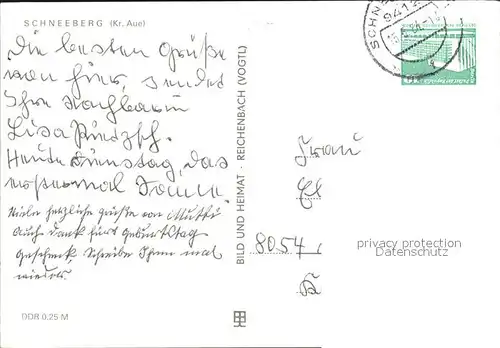 SCHNEEBERG (Kr. Aue)
Die besten Grüße
von hier, sendet
Ihre Nachbarin
Lisa
Heute Dienstag, das
Sonne
Viele herzliche Grüße von Mutti
Auch Dank fürs Geburtstag
Geschenk, Schreibe Ihnen mal
wieder.
DDR 0,25 M
BILD UND HEIMAT · REICHENBACH (VOGTL)
9412
Frau
8054
privacy protection
Datenschutz